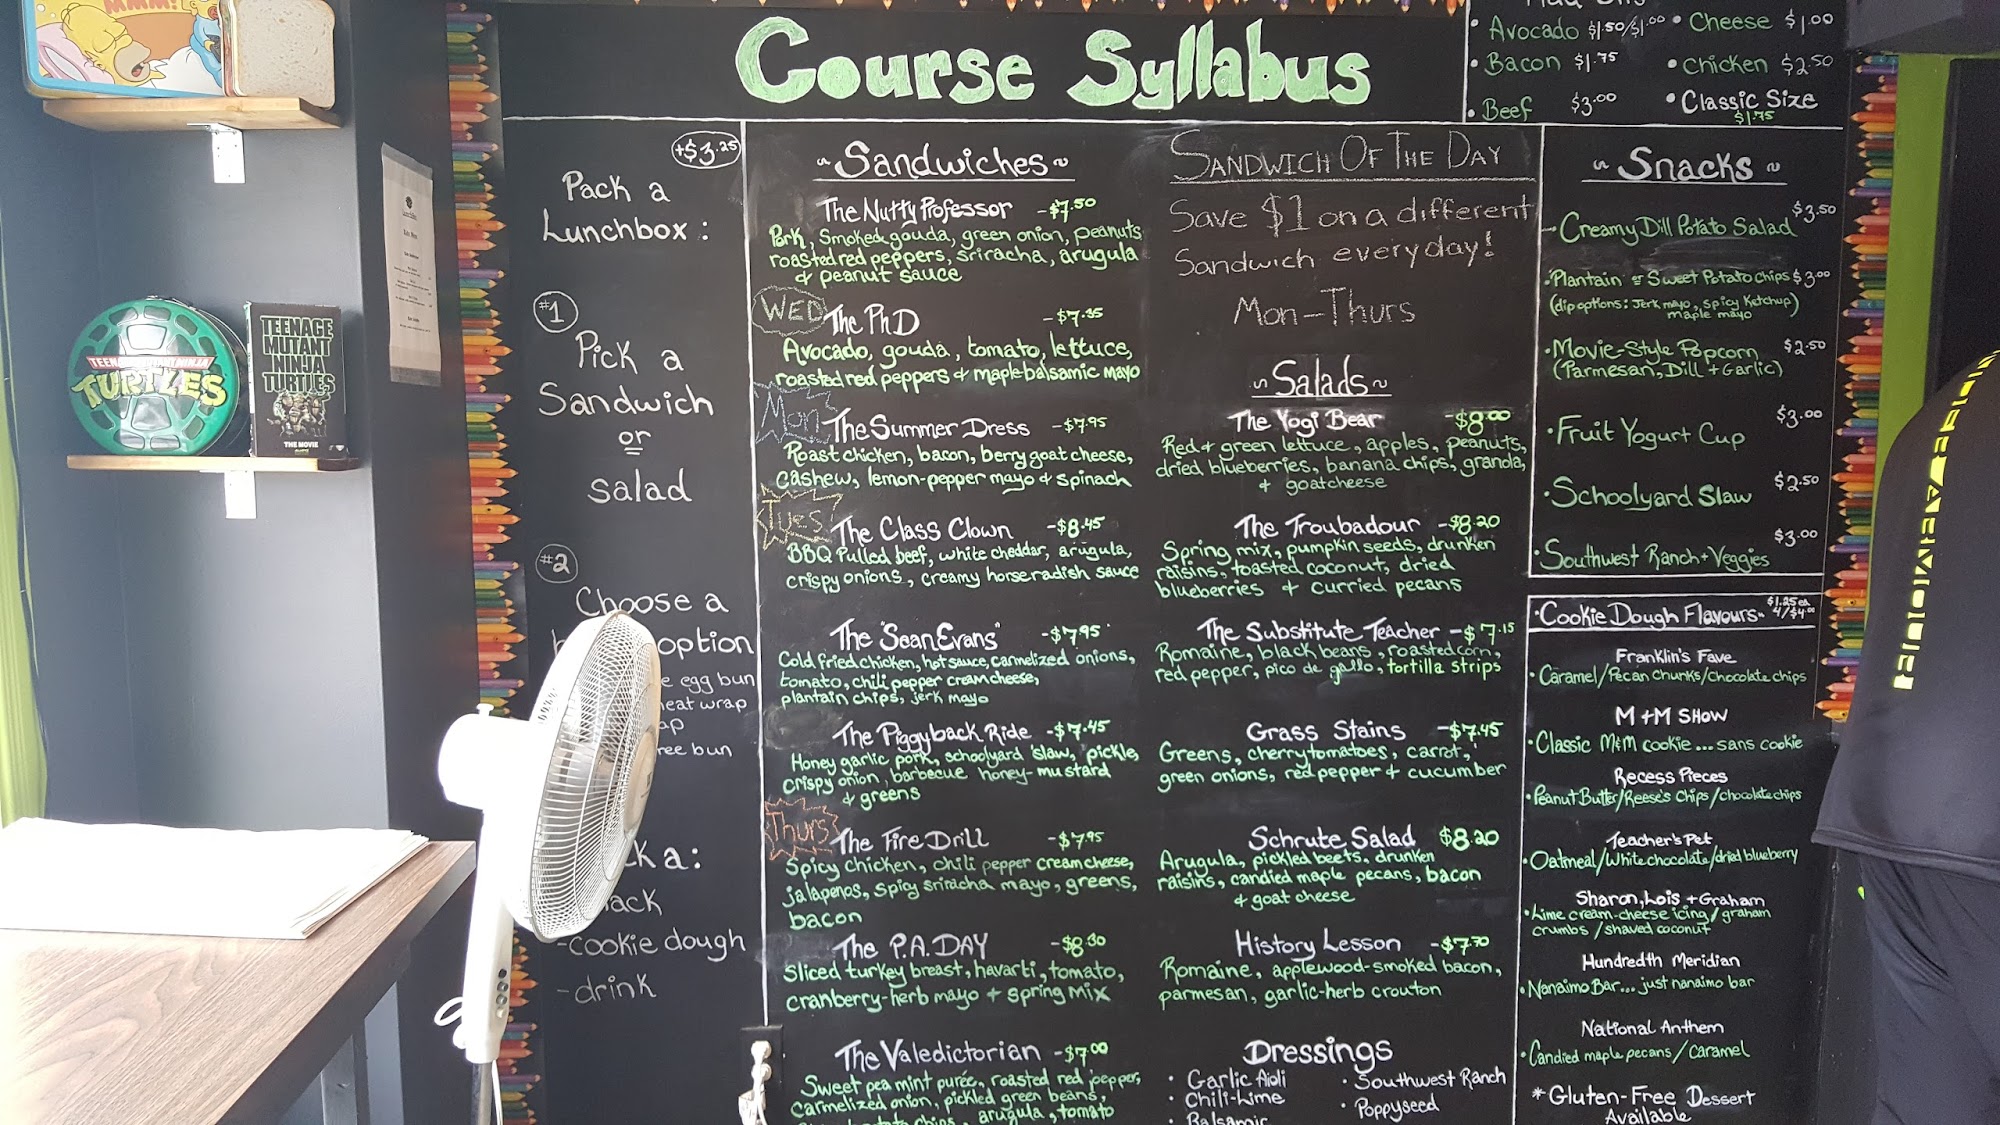 MMM!
TEENAGE MUTANT NINJA
TURTLES
TEENAGE
MUTANT
NINJA
TURTLES
THE MOVIE
Course Syllabus
• Avocado $1.50/$1.00
• Bacon $1.75
• Beef $3.00
• Cheese $1.00
• Chicken $2.50
• Classic Size
$1.75
+$3.25
Pack a
Lunchbox:
#1
Pick a
Sandwich
or
salad
#2
Choose a
option
egg bun
wrap
bun
a:
-cookie dough
-drink
~ Sandwiches ~
The Nutty Professor -$7.50
Pork, Smoked gouda, green onion, peanuts
roasted red peppers, sriracha, arugula
& peanut sauce
WED
The PhD -$7.35
Avocado, gouda, tomato, lettuce,
roasted red peppers & maple-balsamic mayo
Mon
The Summer Dress -$7.95
Roast chicken, bacon, berry goat cheese,
cashew, lemon-pepper mayo & spinach
Tues
The Class Clown -$8.45
BBQ Pulled beef, white cheddar, arugula,
crispy onions, creamy horseradish sauce
The "Sean Evans" -$7.95
Cold fried chicken, hot sauce, carmelized onions,
tomato, chili pepper cream cheese,
plantain chips, jerk mayo
The Piggyback Ride -$7.45
Honey garlic pork, schoolyard slaw, pickle,
crispy onion, barbecue honey-mustard
& greens
Thurs
The Fire Drill -$7.95
Spicy chicken, chili pepper cream cheese,
jalapenos, spicy sriracha mayo, greens,
bacon
The P.A. DAY -$8.30
Sliced turkey breast, havarti, tomato,
cranberry-herb mayo + spring mix
The Valedictorian -$7.00
Sweet pea mint purée, roasted red pepper,
carmelized onion, pickled green beans,
chips, arugula, tomato
SANDWICH OF THE DAY
Save $1 on a different
Sandwich everyday!
Mon-Thurs
~ Salads ~
The Yogi Bear -$8.00
Red & green lettuce, apples, peanuts,
dried blueberries, banana chips, granola,
& goatcheese
The Troubadour -$8.20
Spring mix, pumpkin seeds, drunken
raisins, toasted coconut, dried
blueberries & curried pecans
The Substitute Teacher -$7.15
Romaine, black beans, roasted corn,
red pepper, pico de gallo, tortilla strips
Grass Stains -$7.45
Greens, cherry tomatoes, carrot,
green onions, red pepper & cucumber
Schrute Salad $8.20
Arugula, pickled beets, drunken
raisins, candied maple pecans, bacon
& goat cheese
History Lesson -$7.70
Romaine, applewood-smoked bacon,
parmesan, garlic-herb crouton
Dressings
• Garlic Aioli
• Chili-Lime
Balsamic
• Southwest Ranch
• Poppyseed
~ Snacks ~
Creamy Dill Potato Salad $3.50
• Plantain or Sweet Potato chips $3.00
(dip options: Jerk mayo, spicy Ketchup,
maple mayo)
• Movie-Style Popcorn $2.50
(Parmesan, Dill + Garlic)
• Fruit Yogurt Cup $3.00
• Schoolyard Slaw $2.50
• Southwest Ranch + Veggies $3.00
• Cookie Dough Flavours- $1.25 ea 4/$4.00
Franklin's Fave
• Caramel/Pecan Chunks/chocolate chips
M+M SHOW
• Classic M&M cookie...sans cookie
Recess Pieces
• Peanut Butter/Reese's Chips/chocolate chips
Teacher's Pet
• Oatmeal/White chocolate/dried blueberry
Sharon, Lois + Graham
• Lime cream-cheese icing/graham
crumbs/shaved coconut
Hundredth Meridian
• Nanaimo Bar...just nanaimo bar
National Anthem
• Candied maple pecans/caramel
* Gluten-Free Dessert
Available